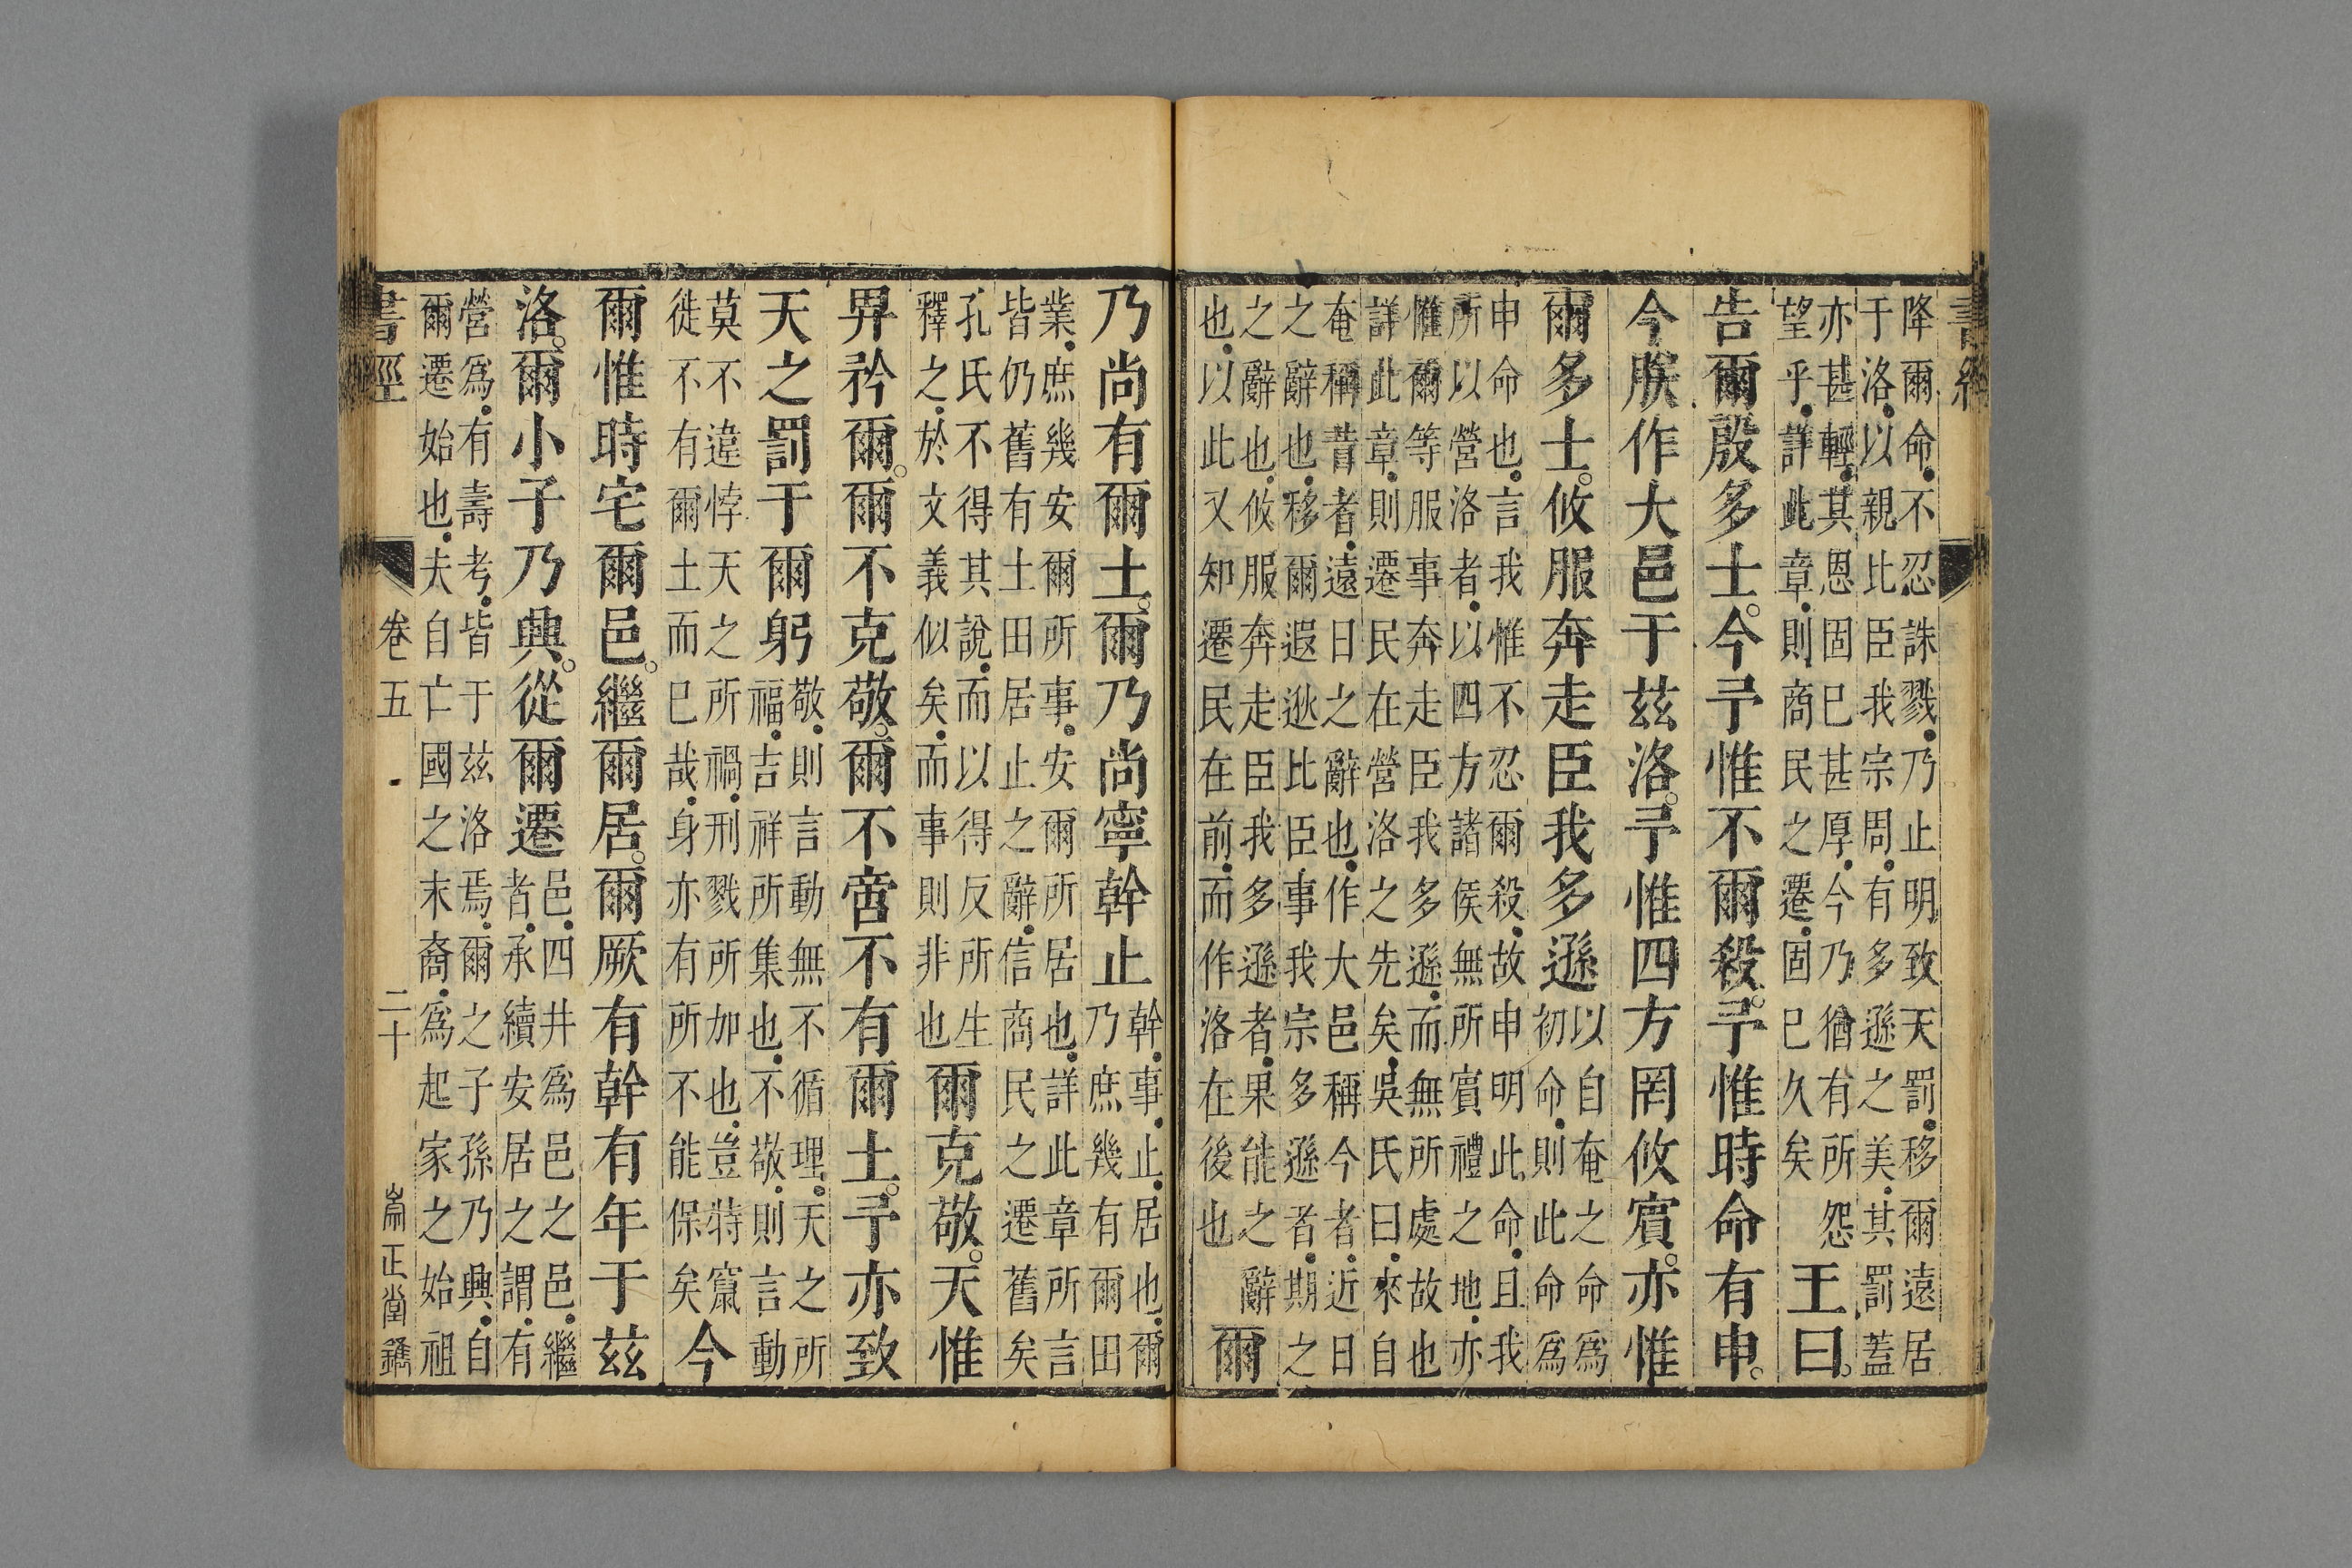 書經
降爾命不忍誅戮乃止明致天罰移爾遠居
于洛以親比臣我宗周有多遜之美其罰蓋
亦甚輕其恩固已甚厚今乃猶有所怨
望乎詳此章則商民之遷固已久矣
王曰
告爾殷多士。今予惟不爾殺。予惟時命有申。
今朕作大邑于茲洛。予惟四方罔攸賓。亦惟
爾多士。攸服奔走臣我多遜
以自奄之命爲
初命則此命爲
申命也言我惟不忍爾殺故申明此命且我
所以營洛者以四方諸侯無所賓禮之地亦
惟爾等服事奔走臣我多遜而無所處故也
詳此章則遷民在營洛之先矣吳氏曰來自
奄稱昔者遠日之辭也作大邑稱今者近日
之辭也移爾遐逖比臣事我宗多遜者期之
之辭也攸服奔走臣我多遜者果能之辭
也以此又知遷民在前而作洛在後也
爾
乃尚有爾土。爾乃尚寧幹止
幹事止居也爾
乃庶幾有爾田
業庶幾安爾所事安爾所居也詳此章所言
皆仍舊有土田居止之辭信商民之遷舊矣
孔氏不得其說而以得反所生
釋之於文義似矣而事則非也
爾克敬。天惟
畀矜爾。爾不克敬。爾不啻不有爾土。予亦致
天之罰于爾躬
敬則言動無不循理天之所
福吉祥所集也不敬則言動
莫不違悖天之所禍刑戮所加也豈特竄
徙不有爾土而已哉身亦有所不能保矣
今
爾惟時宅爾邑。繼爾居。爾厥有幹有年于茲
洛。爾小子乃興。從爾遷
邑四井爲邑之邑繼
者承續安居之謂有
營爲有壽考皆于茲洛焉爾之子孫乃興自
爾遷始也夫自亡國之末裔爲起家之始祖
書經 卷五 二十 崙正堂鐫